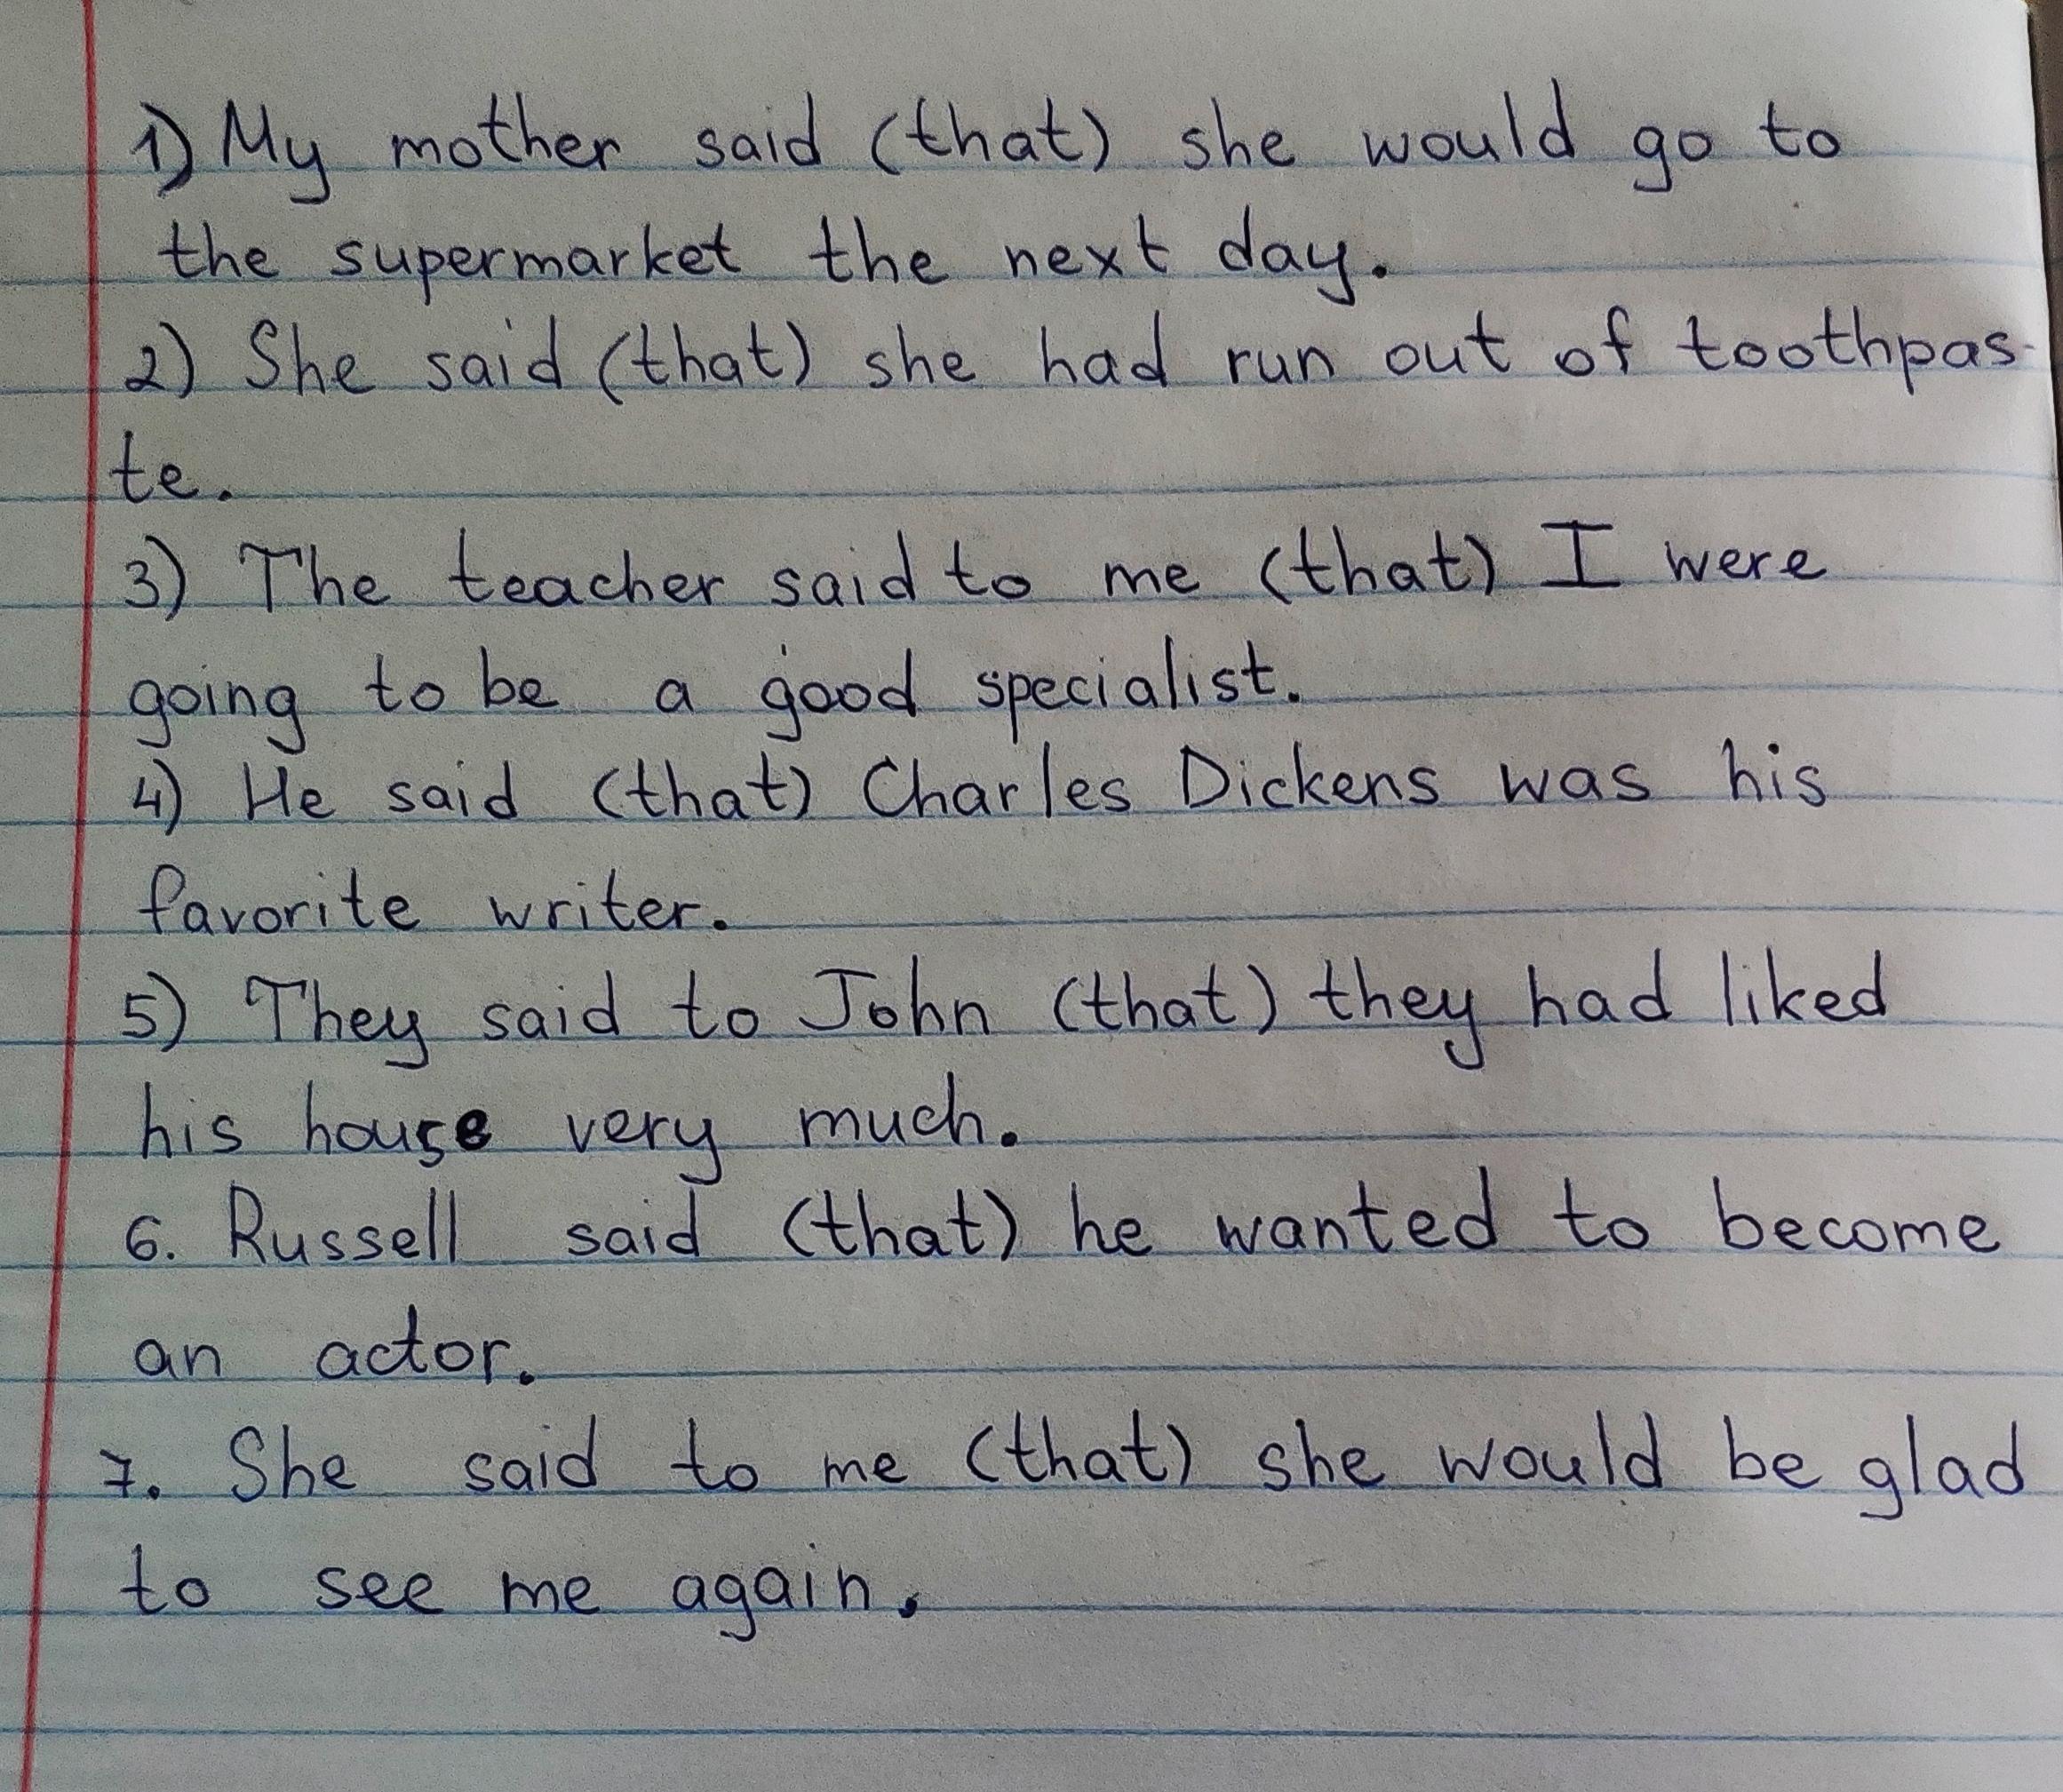 1) My mother said (that) she would go to
the supermarket the next day.
2) She said (that) she had run out of toothpas-
te.
3) The teacher said to me (that) I were
going to be a good specialist.
4) He said (that) Charles Dickens was his
favorite writer.
5) They said to John (that) they had liked
his house very much.
6. Russell said (that) he wanted to become
an actor.
7. She said to me (that) she would be glad
to see me again.